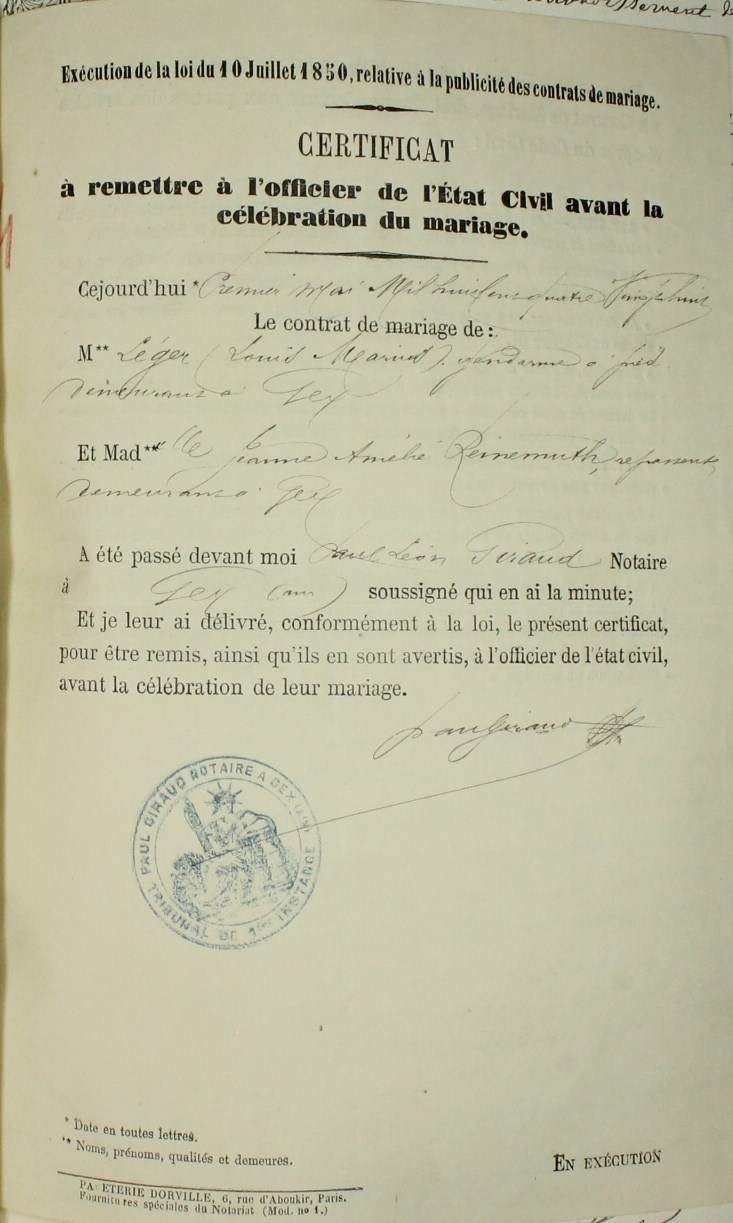 Exécution de la loi du 10 Juillet 1850, relative à la publicité des contrats de mariage.
CERTIFICAT
à remettre à l'officier de l'État Civil avant la
célébration du mariage.
Cejourd'hui * Premier mai Mil huit cent quatre Vingt huit
Le contrat de mariage de :
M** Léger (Louis Marius), gendarme à pied
demeurant à Gex
Et Mad** lle Jeanne Amélie Reinemuth, repasseuse,
demeurant à Gex
A été passé devant moi Paul Léon Giraud Notaire
à Gex (Ain) soussigné qui en ai la minute;
Et je leur ai délivré, conformément à la loi, le présent certificat,
pour être remis, ainsi qu'ils en sont avertis, à l'officier de l'état civil,
avant la célébration de leur mariage.
Paul Giraud
PAUL GIRAUD NOTAIRE A GEX (AIN)
TRIBUNAL DE 1ère INSTANCE
* Date en toutes lettres.
** Noms, prénoms, qualités et demeures.
EN EXÉCUTION
PAPETERIE DORVILLE, 6, rue d'Aboukir, Paris.
Fournitures spéciales du Notariat (Mod. no 1.)